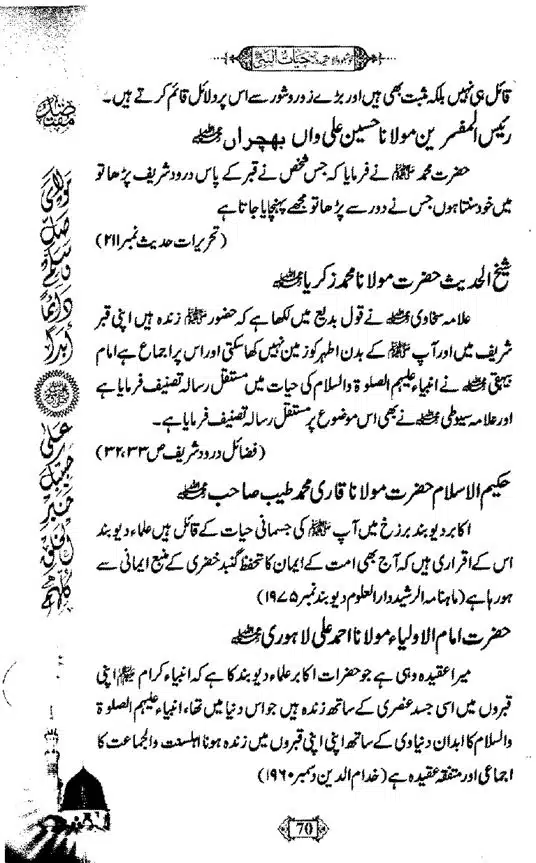 حیات النبی
قائل ہی نہیں بلکہ مثبت بھی ہیں اور بڑے زور و شور سے اس پر دلائل قائم کرتے ہیں۔
رئیس المفسرین مولانا حسین علی واں بھچراں رحمۃ اللہ علیہ
حضرت محمد ﷺ نے فرمایا کہ جس شخص نے قبر کے پاس درود شریف پڑھا تو
میں خود سنتا ہوں جس نے دور سے پڑھا تو مجھے پہنچایا جاتا ہے
(تحریرات حدیث نمبر ۲۱۱)
شیخ الحدیث حضرت مولانا محمد زکریا رحمۃ اللہ علیہ
علامہ سخاوی رحمۃ اللہ علیہ نے قول بدیع میں لکھا ہے کہ حضور ﷺ زندہ ہیں اپنی قبر
شریف میں اور آپ ﷺ کے بدن اطہر کو زمین نہیں کھا سکتی اور اس پر اجماع ہے امام
بیہقی رحمۃ اللہ علیہ نے انبیاء علیہم الصلوۃ والسلام کی حیات میں مستقل رسالہ تصنیف فرمایا ہے
اور علامہ سیوطی رحمۃ اللہ علیہ نے بھی اس موضوع پر مستقل رسالہ تصنیف فرمایا ہے۔
(فضائل درود شریف ص ۳۲،۳۳)
حکیم الاسلام حضرت مولانا قاری محمد طیب صاحب رحمۃ اللہ علیہ
اکابر دیوبند برزخ میں آپ ﷺ کی جسمانی حیات کے قائل ہیں علماء دیوبند
اس کے اقراری ہیں کہ آج بھی امت کے ایمان کا تحفظ گنبد خضری کے منبع ایمانی سے
ہو رہا ہے (ماہنامہ الرشید دار العلوم دیوبند نمبر ۱۹۷۵)
حضرت امام الاولیاء مولانا احمد علی لاہوری رحمۃ اللہ علیہ
میرا عقیدہ وہی ہے جو حضرات اکابر علماء دیوبند کا ہے کہ انبیاء کرام ﷺ اپنی
قبروں میں اسی جسد عنصری کے ساتھ زندہ ہیں جو اس دنیا میں تھا، انبیاء علیہم الصلوۃ
والسلام کا ابدان دنیاوی کے ساتھ اپنی اپنی قبروں میں زندہ ہونا اہلسنت والجماعت کا
اجماعی اور متفقہ عقیدہ ہے (خدام الدین دسمبر ۱۹۶۰)
مولای صل وسلم دائما ابدا
علی حبیبک خیر الخلق کلھم
70